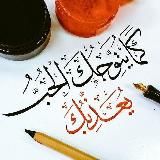 كَمَا يُتَوِّجُكَ الحُبُّ
يُعَذِّبُكَ